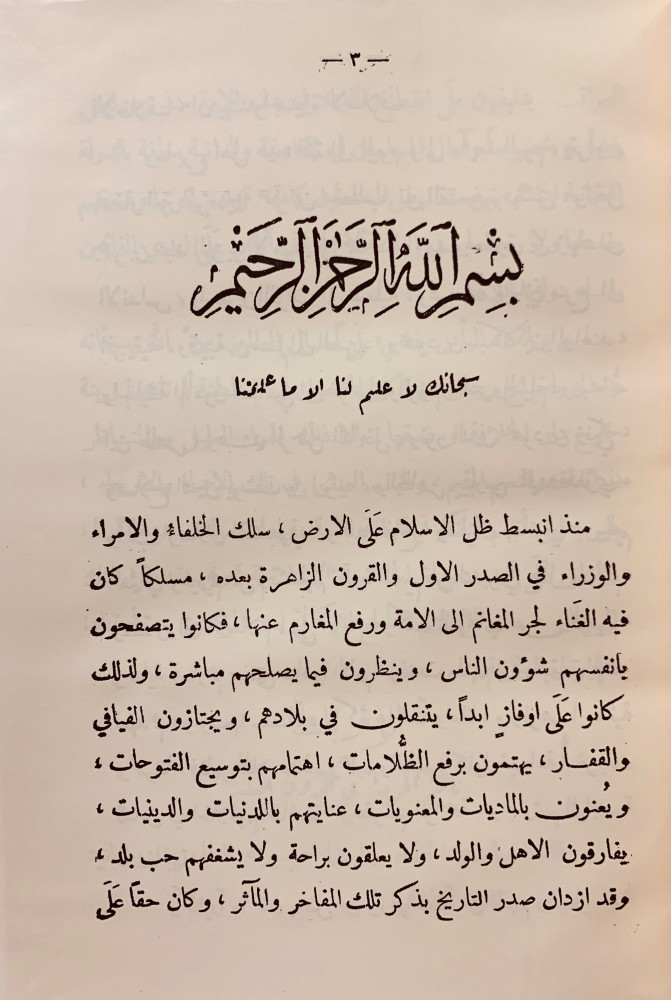 — ٣ —
بِسْمِ اللَّهِ الرَّحْمَٰنِ الرَّحِيْمِ
سبحانك لا علم لنا الا ما علمتنا
منذ انبسط ظل الاسلام عَلَى الارض ، سلك الخلفاءُ والامراء
والوزراء في الصدر الاول والقرون الزاهرة بعده ، مسلكاً كان
فيه الغَناء لجر المغانم الى الامة ورفع المغارم عنها ، فكانوا يتصفحون
بانفسهم شؤون الناس ، وينظرون فيما يصلحهم مباشرة ، ولذلك
كانوا عَلَى اوفازٍ ابداً ، يتنقلون في بلادهم ، ويجتازون الفيافي
والقفار ، يهتمون برفع الظُّلامات ، اهتمامهم بتوسيع الفتوحات ،
ويُعنون بالماديات والمعنويات ، عنايتهم باللدنيات والدينيات ،
يفارقون الاهل والولد ، ولا يعلقون براحة ولا يشغفهم حب بلد ،
وقد ازدان صدر التاريخ بذكر تلك المفاخر والمآثر ، وكان حقاً عَلَى